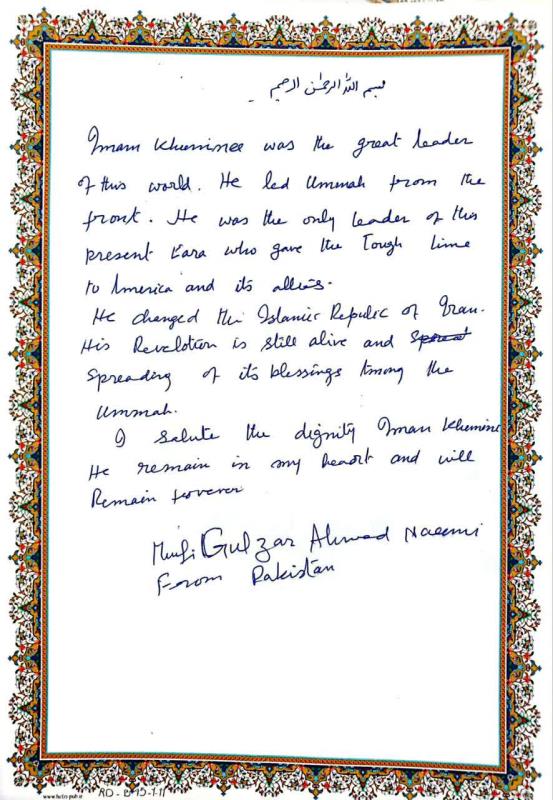 بسم الله الرحمن الرحیم
Imam Khuminee was the great leader
of this world. He led Ummah from the
front. He was the only leader of this
present Eara who gave the Tough time
to America and its allies.
He changed the Islamic Republic of Iran.
His Revelotion is still alive and Spreat
Spreading of its blessings Among the
Ummah.
I salute the dignity Imam Khumine
He remain in my heaort and will
Remain forever
Mufti Gulzar Ahmad Naeemi
From Pakistan
www.hctn-pub.ir